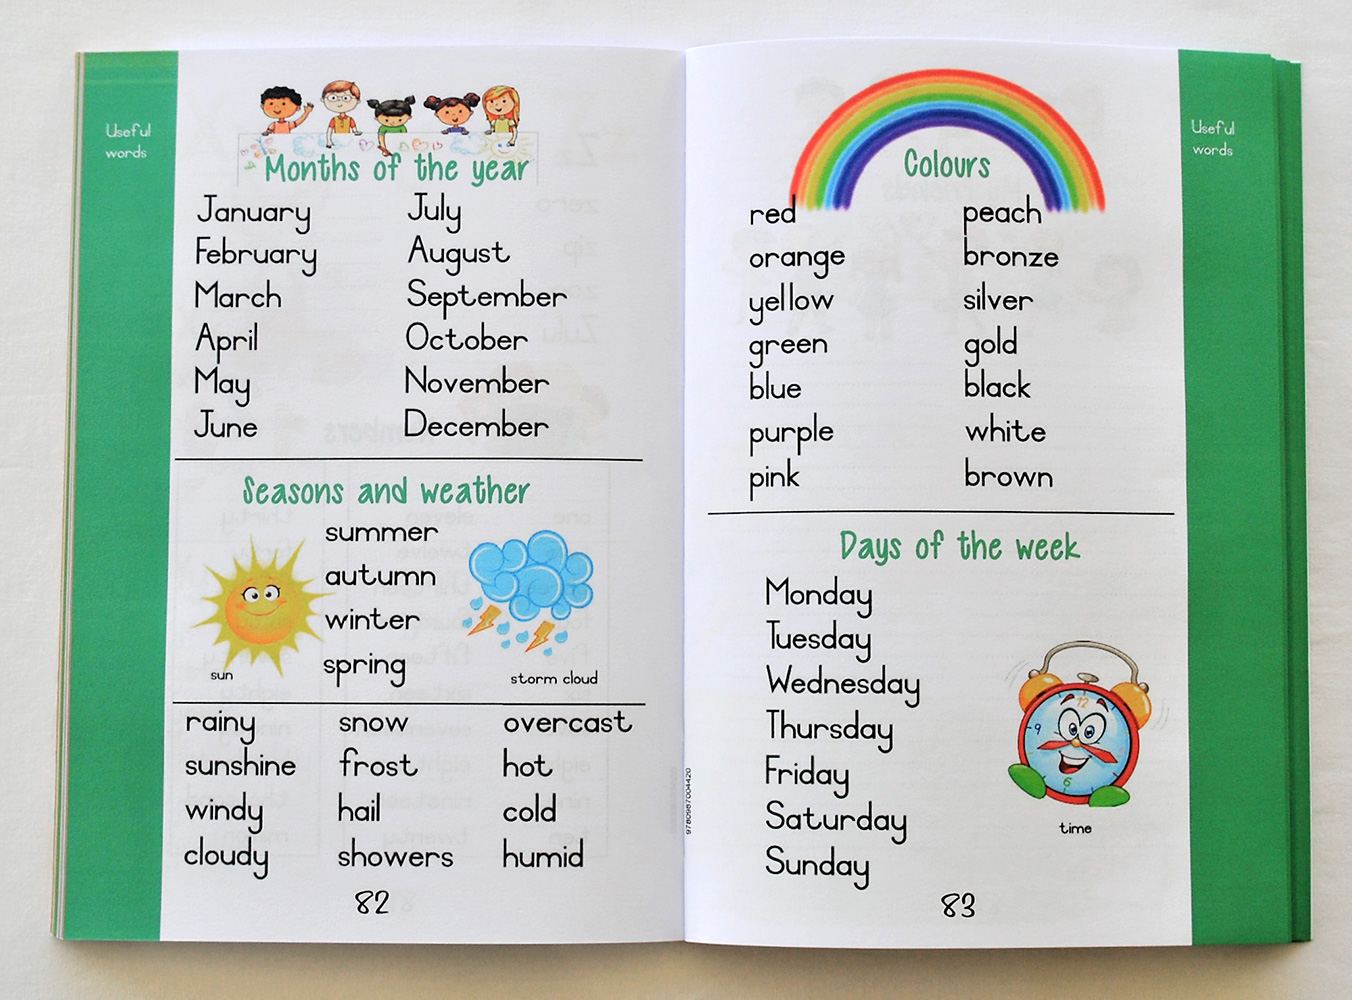 Useful
words
Months of the year
January
February
March
April
May
June
July
August
September
October
November
December
Seasons and weather
summer
autumn
winter
spring
sun
storm cloud
rainy
sunshine
windy
cloudy
snow
frost
hail
showers
overcast
hot
cold
humid
82
9780987004420
Useful
words
Colours
red
orange
yellow
green
blue
purple
pink
peach
bronze
silver
gold
black
white
brown
Days of the week
Monday
Tuesday
Wednesday
Thursday
Friday
Saturday
Sunday
12
9
6
time
83